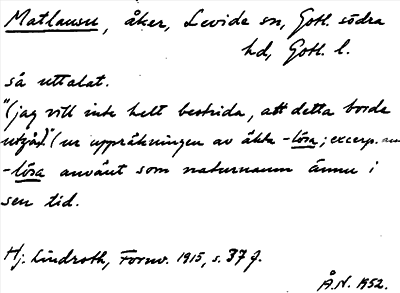 Matlausu, åker, Levide sn, Gotl. södra
hd, Gotl. l.
så uttalat.
"(jag vill inte helt bestrida, att detta borde
utgå)." (ur uppräkningen av äkta -lösa; excerp. anm.
-lösa använt som naturnamn ännu i
sen tid.
Hj. Lindroth, Fornv. 1915, s. 37 f.
Å.N. 1952.